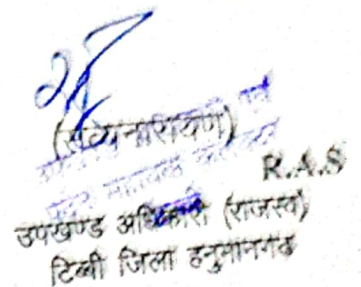 (सत्यनारायण)
R.A.S
उपखण्ड अधिकारी (राजस्व)
टिब्बी जिला हनुमानगढ